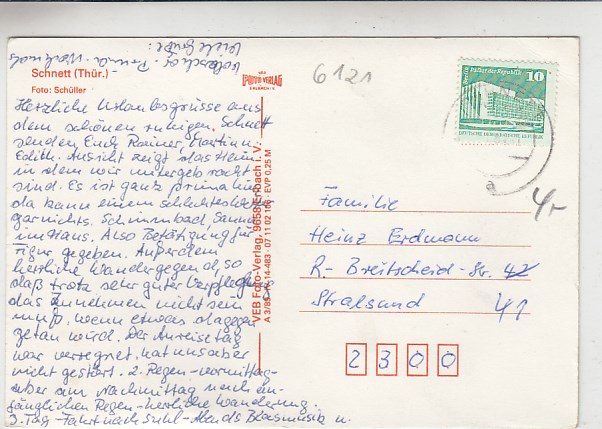 Schnett (Thür.)
Foto: Schüller
Herzliche Urlaubsgrüsse aus
dem schönen ruhigen Schnett
senden Euch Rainer, Martin u.
Edith. Ansicht zeigt das Heim
in dem wir untergebracht
sind. Es ist ganz prima hier
da kann einem schlechtes Wetter
garnichts. Schwimmbad, Sauna
im Haus. Also Betätigung für
Figur gegeben. Außerdem
herrliche Wandergegend, so
daß trotz sehr guter Verpflegung
das Zunehmen nicht sein
muß, wenn etwas dagegen
getan wird. Der Anreisetag
war verregnet, hat uns aber
nicht gestört. 2. Regen-vormittag
aber am Nachmittag nach an-
fänglichen Regen-herrliche Wanderung.
3. Tag-Fahrt nach Suhl-Abends Blasmusik u.
Viele Grüße
VEB
FOTO VERLAG
ERLBACH
VEB Foto-Verlag, 9659 Erlbach i. V.
EVP 0,25 M
6121
Berlin, Palast der Republik
10
DEUTSCHE DEMOKRATISCHE REPUBLIK
Familie
Heinz Erdmann
R-Breitscheid-Str. 42
Stralsund 41
2300